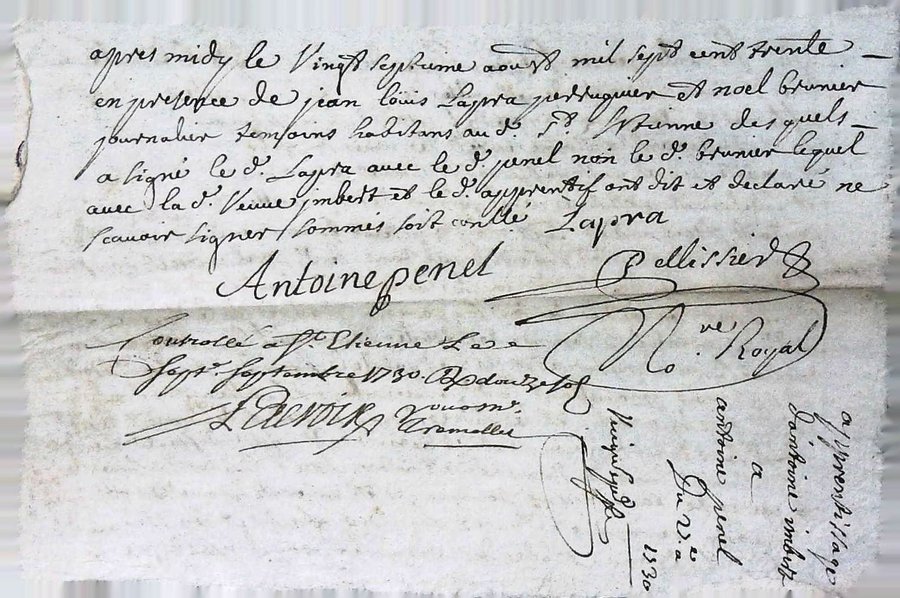 apres midy le vingt septieme aoust mil sept cent trente
en presence de jean louis Lapra perruquier et noel brunier
journalier temoins habitans au d. St. Etienne des quels
a signé le d. Lapra avec le d. penel non le d. brunier lequel
avec la d. veuve jmbert et le d. apprentif ont dit et declaré ne
scavoir signer sommés soit contlé Lapra
Antoine penel
Pellissier
No.re Royal
Controllé a St. Etienne Le
Sept. Septembre 1730. R douze sols
apprentissage
d'antoine imbert
a
antoine penel
Du
1730